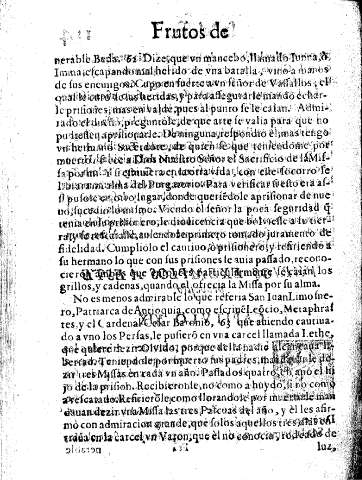 Frutos de
nerable Beda. 62 Dize, que vn mancebo, llamado
Imma, escapando mal herido de vna batalla, vino a manos
de sus enemigos. Cupo en suerte a vn señor de Vassallos, el
qual le curò de sus heridas, y para assegurarle mandò echar-
le prisiones, mas en valde, pues al punto se le caìan. Admi-
rado el dueño, preguntòle, de que arte se valia para que no
pudiessen aprisionarle. De ninguna, respondiò el, mas tengo
vn hermano Sacerdote, de quien sè que teniendome por
muerto, ofrece a Dios Nuestro Señor el Sacrificio de la Mis-
sa por mi. Y si estuviera en la otra vida, con este socorro se
librara mi alma del Purgatorio. Para verificar si esto era as-
si pusole en otro lugar, donde queriendole aprisionar de nue-
vo, sucediò lo mismo. Viendo el señor la poca seguridad q̃
tenia en su prisionero, le diò licencia que bolviesse a su tier-
ra, y se rescatasse, auiendole primero tomado juramento de
fidelidad. Cumpliolo el cautiuo, ò prisionero, y refiriendo a
su hermano lo que con sus prisiones le auia passado, recono-
cieron que se le caìan los
grillos, y cadenas, quando el ofrecia la Missa por su alma.
No es menos admirable lo que referia San Iuan Limos-
nero, Patriarca de Antioquia, como escriuè Leoncio, Metaphras-
tes, y el Cardenal Cesar Baronio, 63 que auiendo cautiua-
do a vno los Persas, le pusierõ en vna carcel llamada Lethe,
que quiere dezir Olvido, porque de alli nadie alcançaua li-
bertad. Teniendole por muerto sus padres, mandauanle de-
zir tres Missas en cada vn año. Passados quatro, el hi-
jo de la prision. Recibieronle, no como a huydo, si no como
a rescatado. Refirierõle, como llorandole por muerto le man-
dauan dezir vna Missa las tres Pascuas del año, y èl les afir-
mò con admiracion grande, que solos aquellos tres dias en-
traua en la carcel vn Varon, que el no conocia, rodeado de
luz,